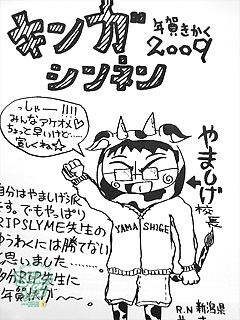 年賀きかく
2009
キンガ
シンネン
っしゃー!!!!
みんなアケオメ♡
ちょっと早いけど…
宜しくね☆
やましげ校長
YAMA SHIGE
自分はやましげ派
です。でもやっぱり
RIPSLYME先生の
ゆうわくには勝てない
と思いました…
先生に
年賀状が〜〜〜
R.N 新潟県